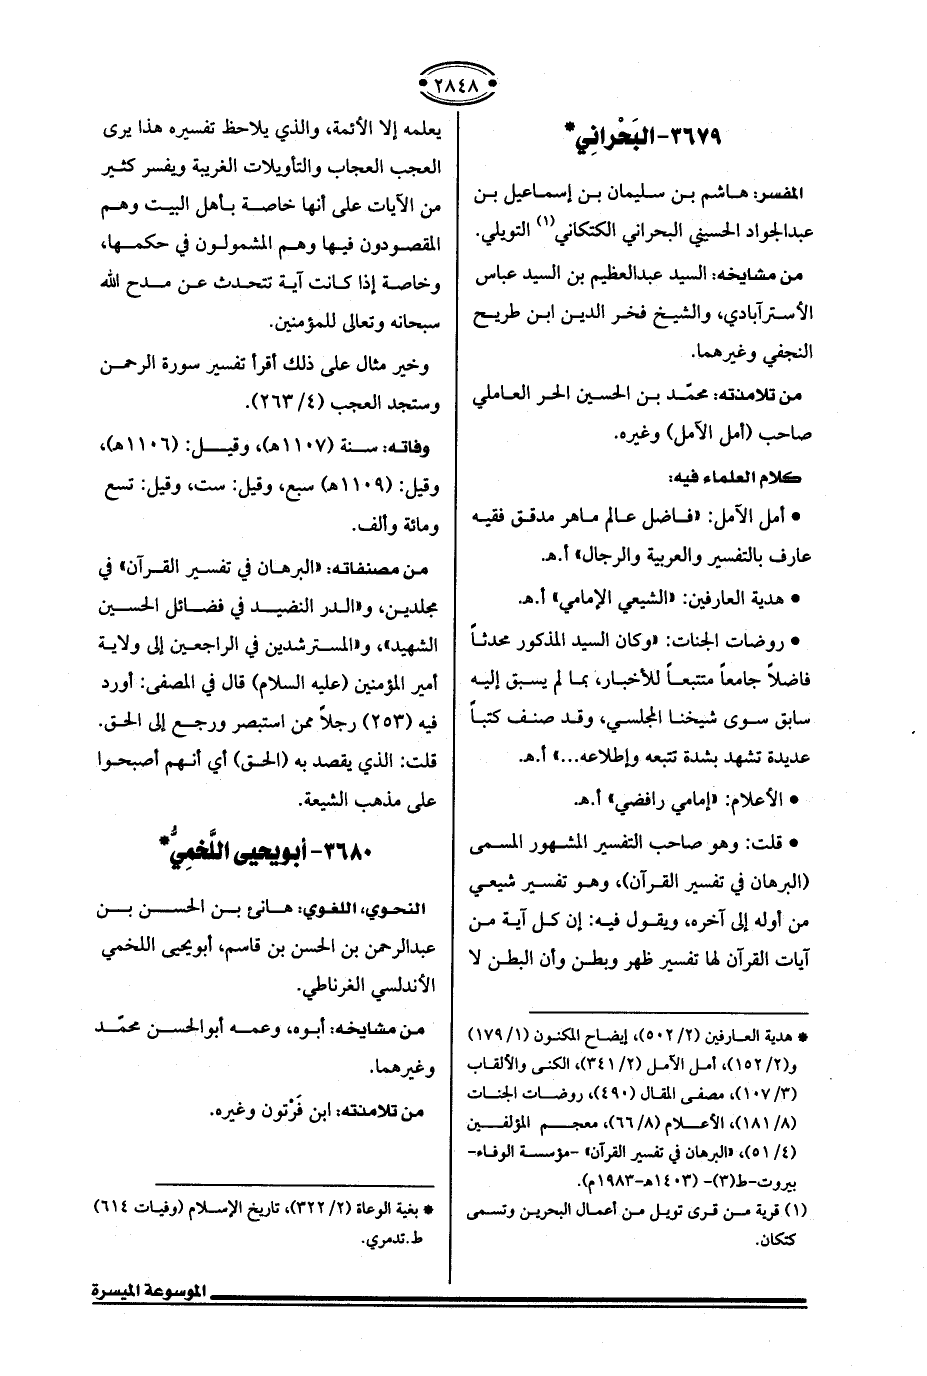 ٢٨٤٨
٣٦٧٩- البَحْراني*
المفسر: هاشم بن سليمان بن إسماعيل بن
عبدالجواد الحسيني البحراني الكتكاني(١) التوبلي.
من مشايخه: السيد عبدالعظيم بن السيد عباس
الأسترآبادي، والشيخ فخر الدين ابن طريح
النجفي وغيرهما.
من تلامذته: محمّد بن الحسين الحر العاملي
صاحب (أمل الآمل) وغيره.
كلام العلماء فيه:
• أمل الآمل: «فاضل عالم ماهر مدقق فقيه
عارف بالتفسير والعربية والرجال» أ.هـ.
• هدية العارفين: «الشيعي الإمامي» أ.هـ.
• روضات الجنات: «وكان السيد المذكور محدثاً
فاضلاً جامعاً متتبعاً للأخبار، بما لم يسبق إليه
سابق سوى شيخنا المجلسي، وقد صنف كتباً
عديدة تشهد بشدة تتبعه وإطلاعه...» أ.هـ.
• الأعلام: «إمامي رافضي» أ.هـ.
• قلت: وهو صاحب التفسير المشهور المسمى
(البرهان في تفسير القرآن)، وهو تفسير شيعي
من أوله إلى آخره، ويقول فيه: إن كل آية من
آيات القرآن لها تفسير ظهر وبطن وأن البطن لا
* هدية العارفين (٢/ ٥٠٢)، إيضاح المكنون (١/ ١٧٩)
و(٢/ ١٥٢)، أمل الآمل (٢/ ٣٤١)، الكنى والألقاب
(٣/ ١٠٧)، مصفى المقال (٤٩٠)، روضات الجنات
(٨/ ١٨١)، الأعلام (٨/ ٦٦)، معجم المؤلفين
(٤/ ٥١)، «البرهان في تفسير القرآن» -مؤسسة الوفاء-
بيروت-ط(٣)- (١٤٠٣هـ-١٩٨٣م).
(١) قرية من قرى توبل من أعمال البحرين وتسمى
كتكان.
يعلمه إلا الأئمة، والذي يلاحظ تفسيره هذا يرى
العجب العجاب والتأويلات الغريبة ويفسر كثير
من الآيات على أنها خاصة بأهل البيت وهم
المقصودون فيها وهم المشمولون في حكمها،
وخاصة إذا كانت آية تتحدث عن مدح الله
سبحانه وتعالى للمؤمنين.
وخير مثال على ذلك أقرأ تفسير سورة الرحمن
وستجد العجب (٤/ ٢٦٣).
وفاته: سنة (١١٠٧هـ)، وقيل: (١١٠٦هـ)،
وقيل: (١١٠٩هـ) سبع، وقيل: ست، وقيل: تسع
ومائة وألف.
من مصنفاته: «البرهان في تفسير القرآن» في
مجلدين، و«الدر النضيد في فضائل الحسين
الشهيد»، و«المسترشدين في الراجعين إلى ولاية
أمير المؤمنين (عليه السلام) قال في المصفى: أورد
فيه (٢٥٣) رجلاً ممن استبصر ورجع إلى الحق.
قلت: الذي يقصد به (الحق) أي أنهم أصبحوا
على مذهب الشيعة.
٣٦٨٠- أبويحيى اللَّخمِيُّ*
النحوي، اللغوي: هانئ بن الحسن بن
عبدالرحمن بن الحسن بن قاسم، أبويحيى اللخمي
الأندلسي الغرناطي.
من مشايخه: أبوه، وعمه أبوالحسن محمّد
وغيرهما.
من تلامذته: ابن فَرْتون وغيره.
* بغية الوعاة (٢/ ٣٢٢)، تاريخ الإسلام (وفيات ٦١٤)
ط.تدمري.
الموسوعة الميسرة